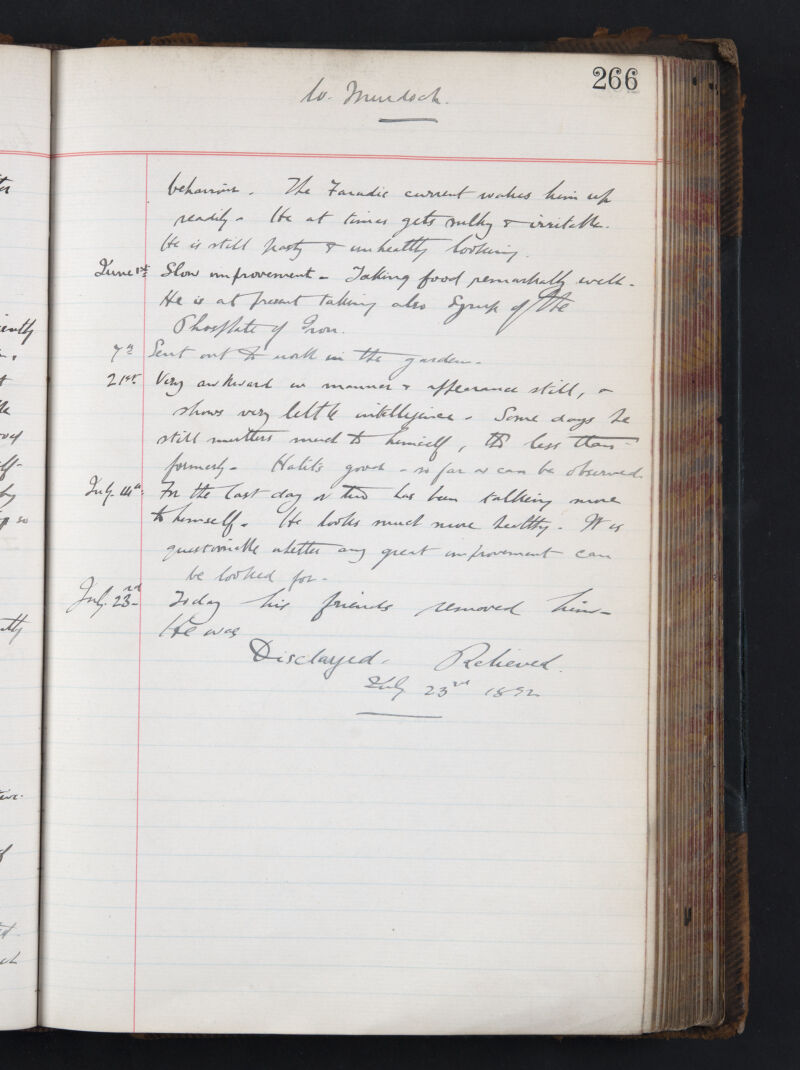 266
W. Murdoch.
behaviour. The Faradic current wakes him up
readily. He at times gets sulky & irritable.
He is still pasty & unhealthy looking.
June 1st. Slow improvement - Taking food remarkably well.
He is at present taking also Syrup of the
Phosphate of Iron.
7th Sent out to work in the garden.
21st. Very awkward in manner & appearance still, &
shows very little intelligence. Some days he
still mutters much to himself, tho less than
formerly. Habits good - so far as can be observed
July 14th. For the last day or two has been talking more
to himself. He looks much more healthy. It is
questionable whether any great improvement can
be looked for.
July. 23rd Today his friends removed him.
He was
Discharged. Relieved.
July 23rd 1892